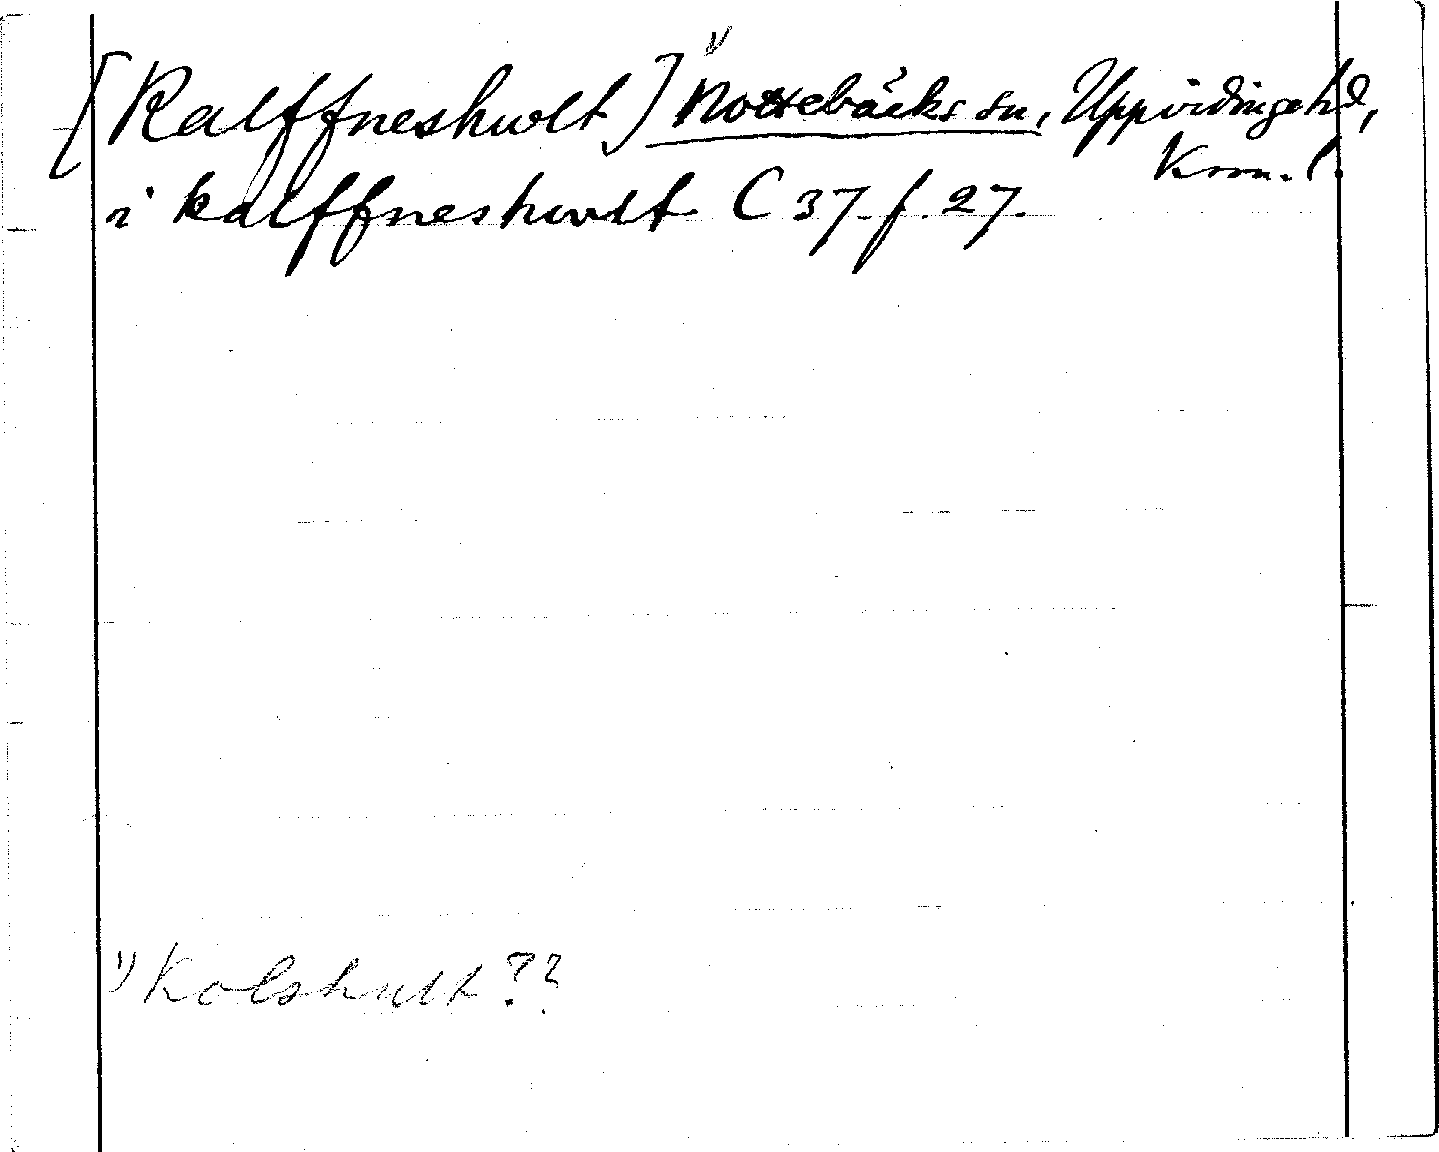 [Kalffneshwlt] ¹⁾ Nottebäcks sn, Uppvidinge hd,
Kron. l.
i kalffneshwlt C 37. f. 27.
¹⁾ Kolshult??